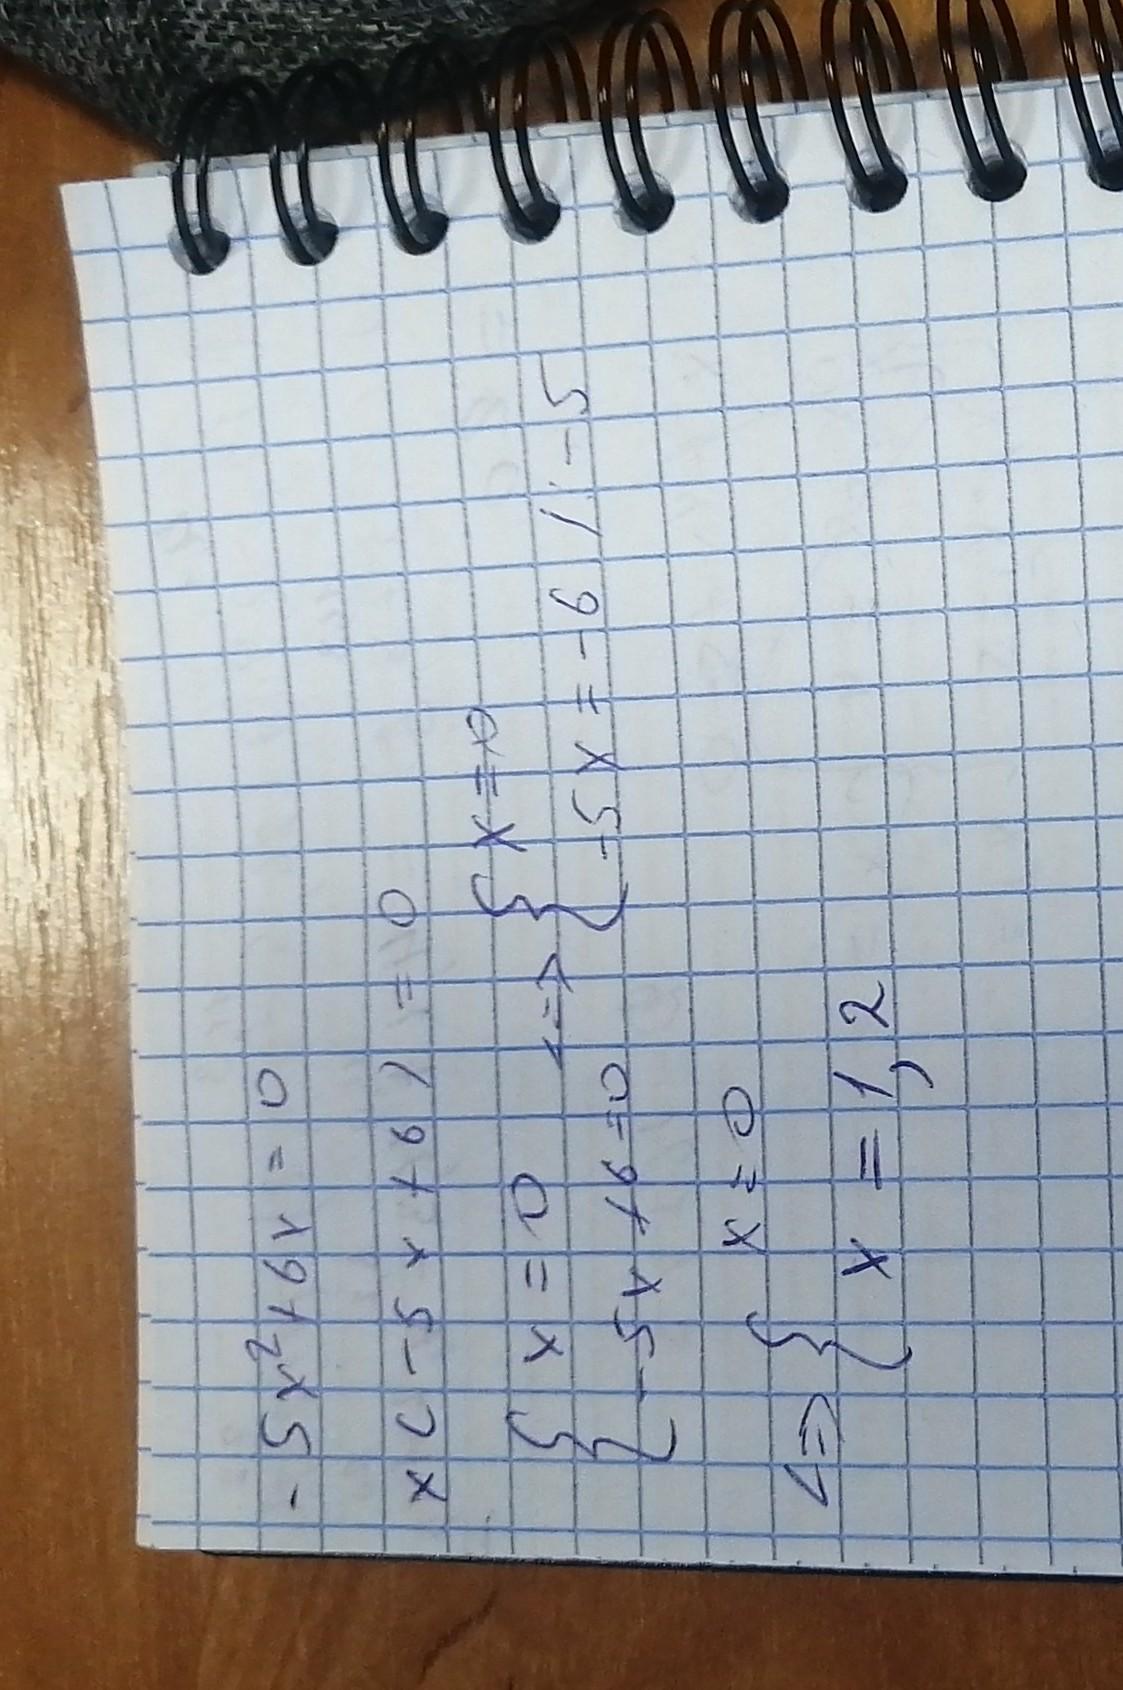 -5x²+6x=0
x(-5x+6)=0
{ x=0
-5x+6=0 <=> { x=0
-5x=-6 /:-5
<=> { x=0
x=1,2